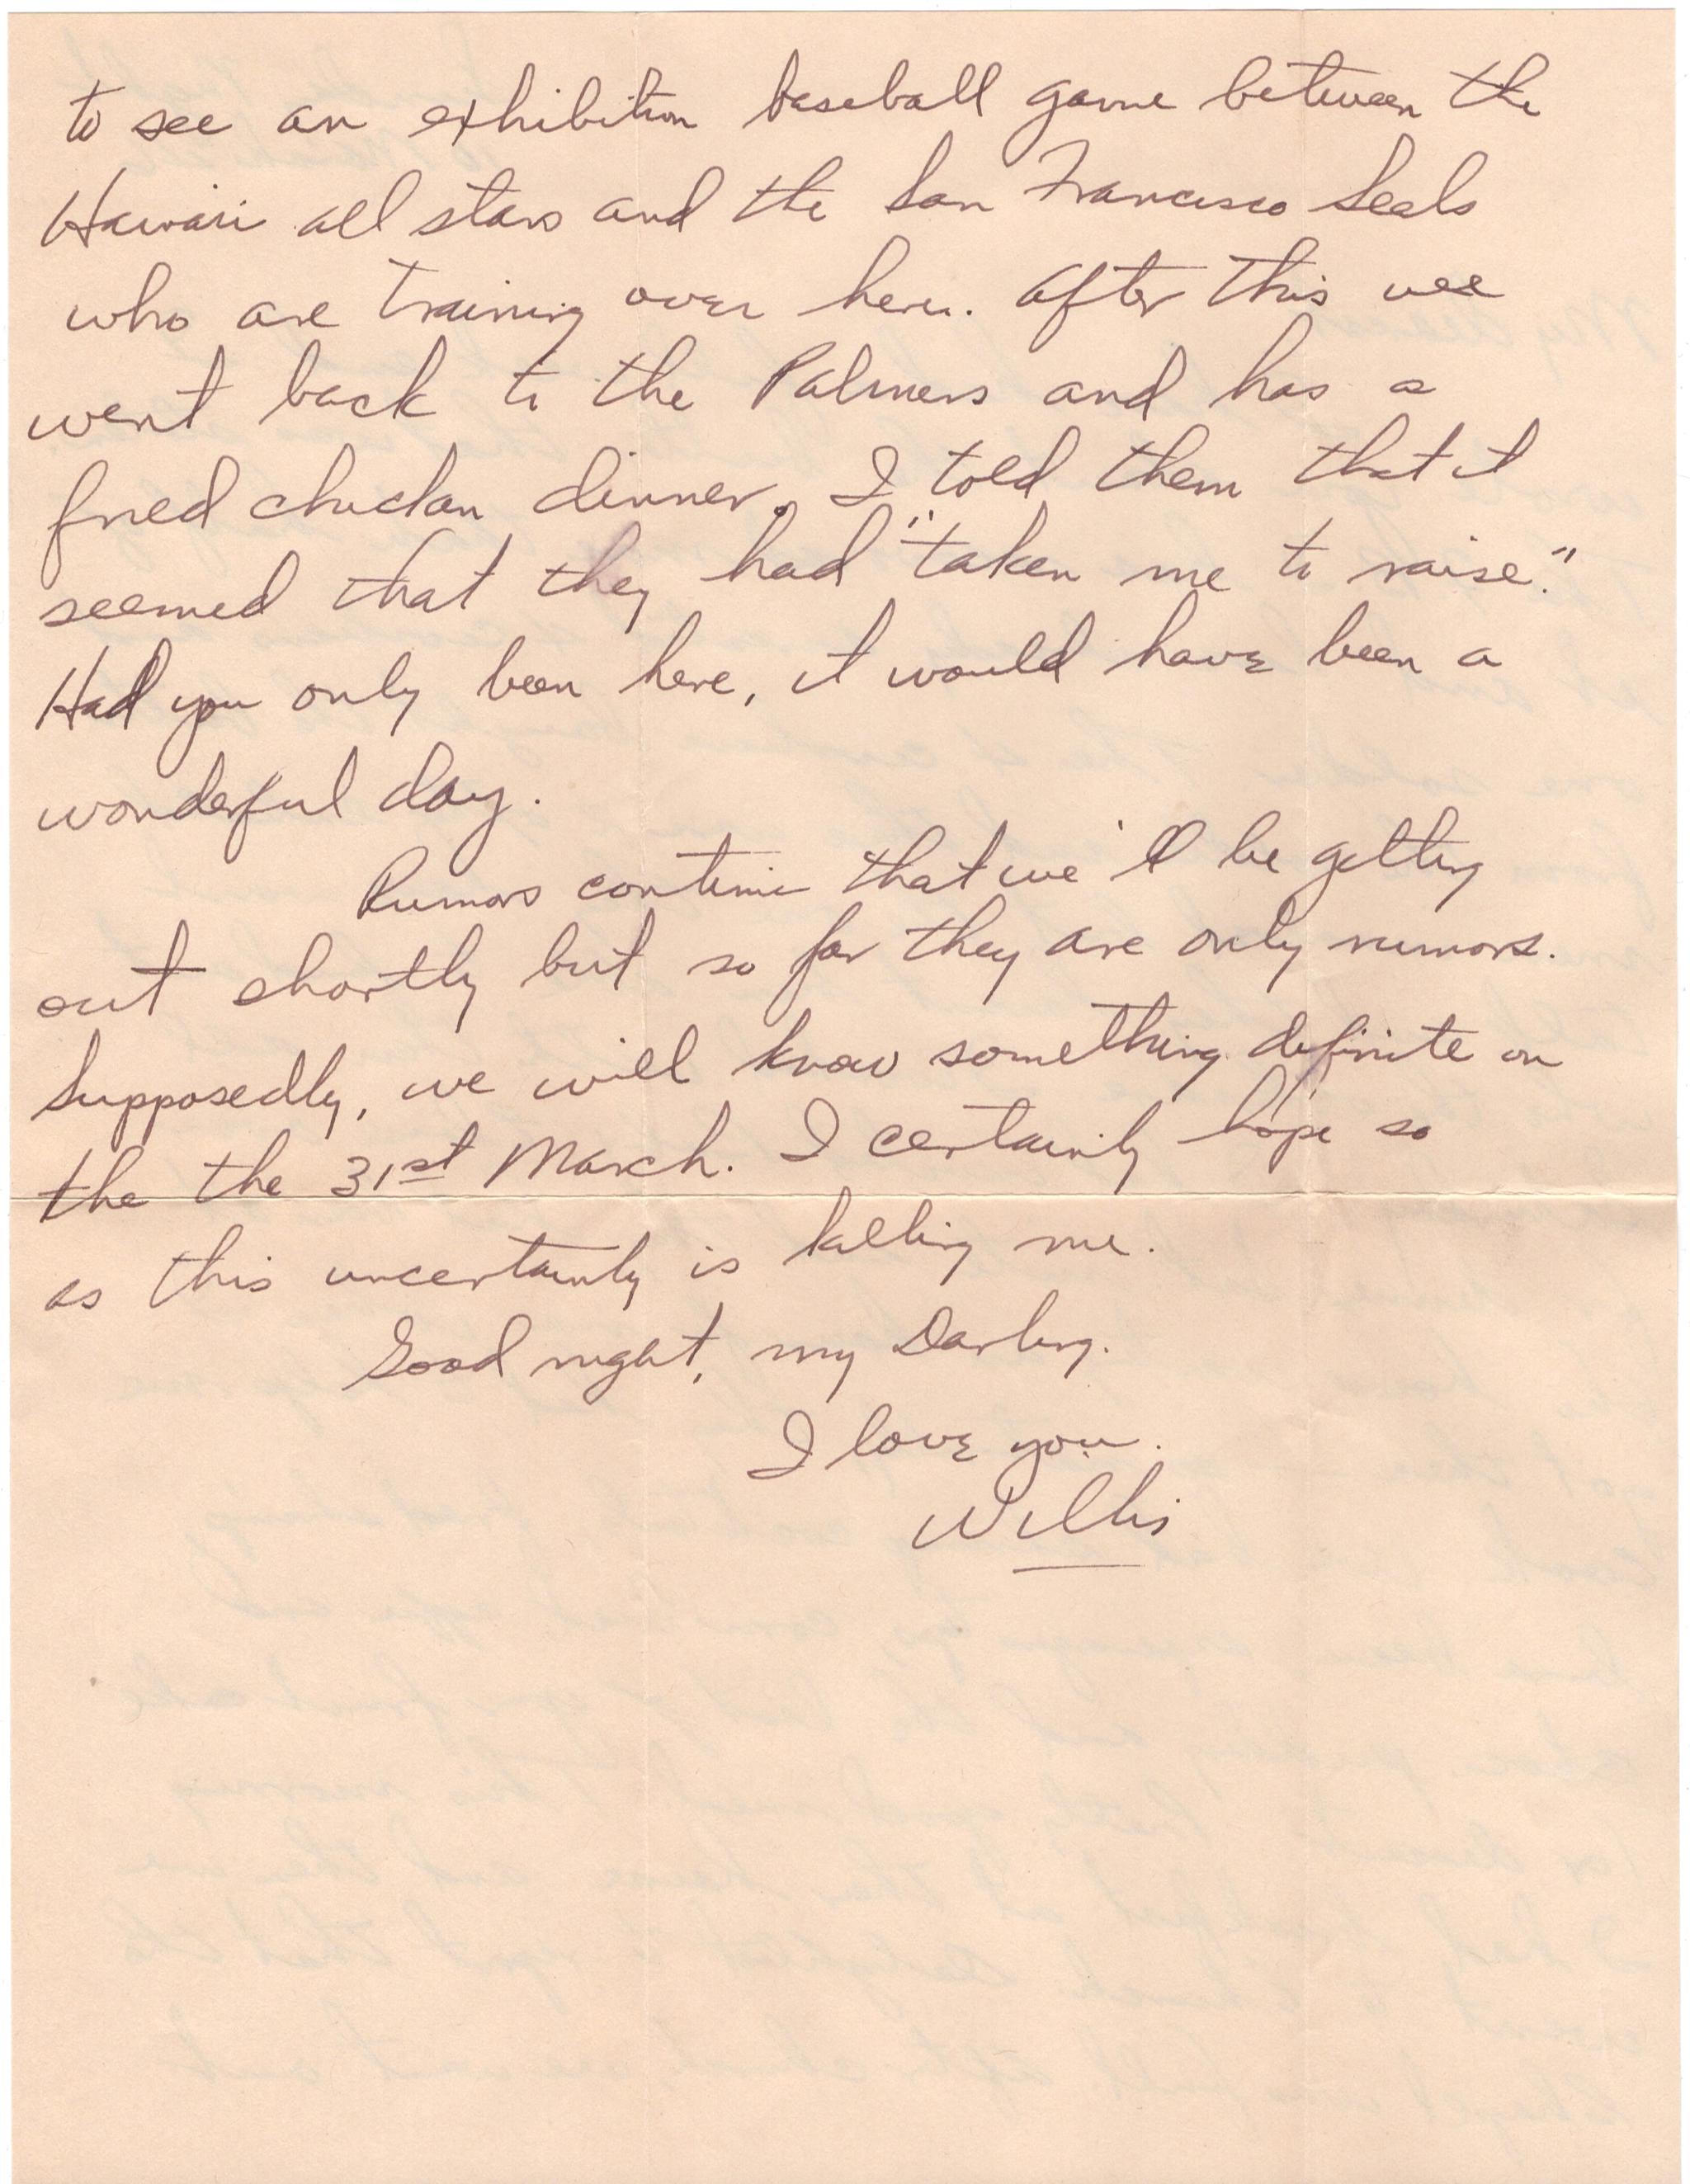 to see an exhibition baseball game between the
Hawaii all stars and the San Francisco Seals
who are training over here. After this wee
went back to the Palmers and has a
fried chicken dinner. I told them that it
seemed that they had "taken me to raise."
Had you only been here, it would have been a
wonderful day.
Rumors continue that we'll be getting
out shortly but so far they are only rumors.
Supposedly, we will know something definite on
the the 31st March. I certainly hope so
as this uncertainty is killing me.
Good night, my Darling.
I love you.
Willis